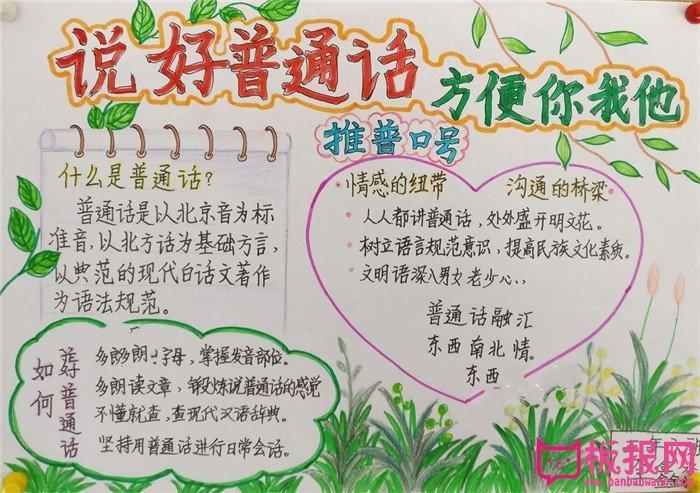 说好普通话
方便你我他
推普口号
什么是普通话?
普通话是以北京音为标
准音,以北方话为基础方言,
以典范的现代白话文著作
为语法规范。
情感的纽带 沟通的桥梁
人人都讲普通话,处处盛开明文花。
树立语言规范意识,提高民族文化素质。
文明语深入男女老少心,
普通话融汇
东西南北情。
东西
如何
好普通话
多朗 字母,掌握发音部位。
多朗读文章,锻炼说普通话的感觉
不懂就查,查现代汉语辞典。
坚持用普通话进行日常会话。
板报网
www.banbaowang.com